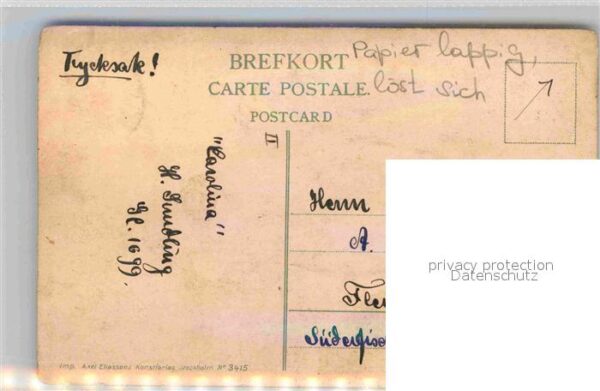 Trycksak!
BREFKORT
CARTE POSTALE.
POSTCARD
Papier lappig,
löst sich
II
"Carolina"
H.
Herrn
A.
Fle
Süderfisc
Imp. Axel Eliassons Konstförlag, Stockholm Nº 3415
privacy protection
Datenschutz